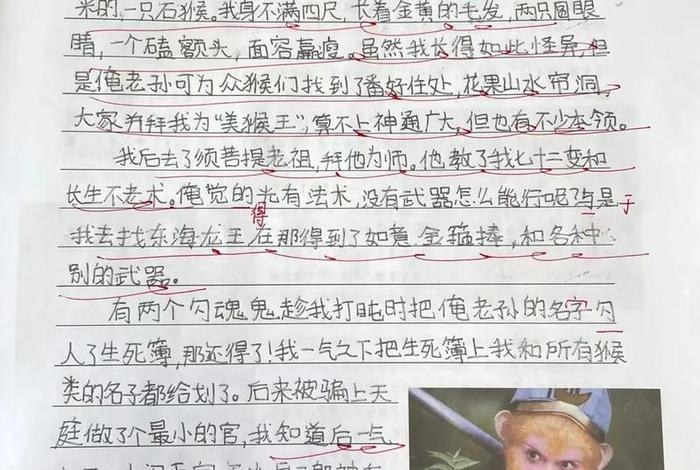 来的一只石猴。我身不满四尺，长着金黄的毛发，两只圆眼
睛，一个磕额头，面容羸瘦。虽然我长得如此怪异，但
是俺老孙可为众猴们找到了番好住处，花果山水帘洞，
大家齐拜我为“美猴王”，算不上神通广大，但也有不少本领。
我后去了须菩提老祖，拜他为师。他教了我七十二变和
长生不老术。俺觉的光有法术，没有武器怎么能行呢？与是
得 于
我去找东海龙王在那得到了如意金箍捧，和各种
别的武器。
有两个勾魂鬼，趁我打盹时把俺老孙的名字勾
人了生死簿，那还得了！我一气之下把生死簿上我和所有猴
类的名子都给划了。后来被骗上天
庭做了个最小的官，我知道后一气